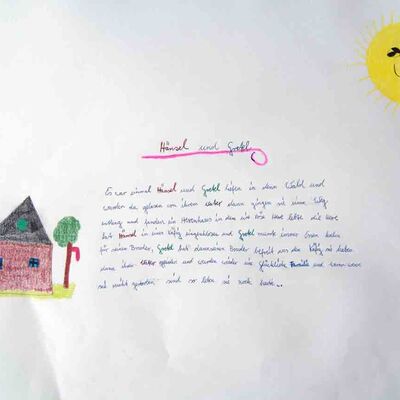 Hänsel und Gretel
Es war einmal Hänsel und Gretel liefen in dem Wald und
wurden da gelasen von ihrem vater dann gingen sie einen
entlang und fanden ein Hexenhaus in dem eine böse Hexe lebte die Hexe
hat Hänsel in einen Käfig eingeschlossen und Gretel musste immer Essen holen
für seinen Bruder, Gretel hat dann seinen Bruder befreit aus den Käfig sie haben
dann ihren vater gefunden und wurden wieder eine glückliche Familie und wenn
sie nicht gestorben sind so leben sie noch heute..